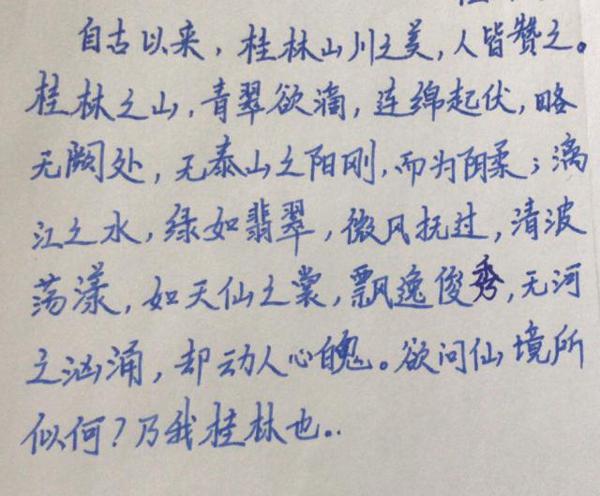 自古以来，桂林山川之美，人皆赞之。
桂林之山，青翠欲滴，连绵起伏，略
无阙处，无泰山之阳刚，而为阴柔；漓
江之水，绿如翡翠，微风抚过，清波
荡漾，如天仙之裳，飘逸俊秀，无河
之汹涌，却动人心魄。欲问仙境所
似何？乃我桂林也..